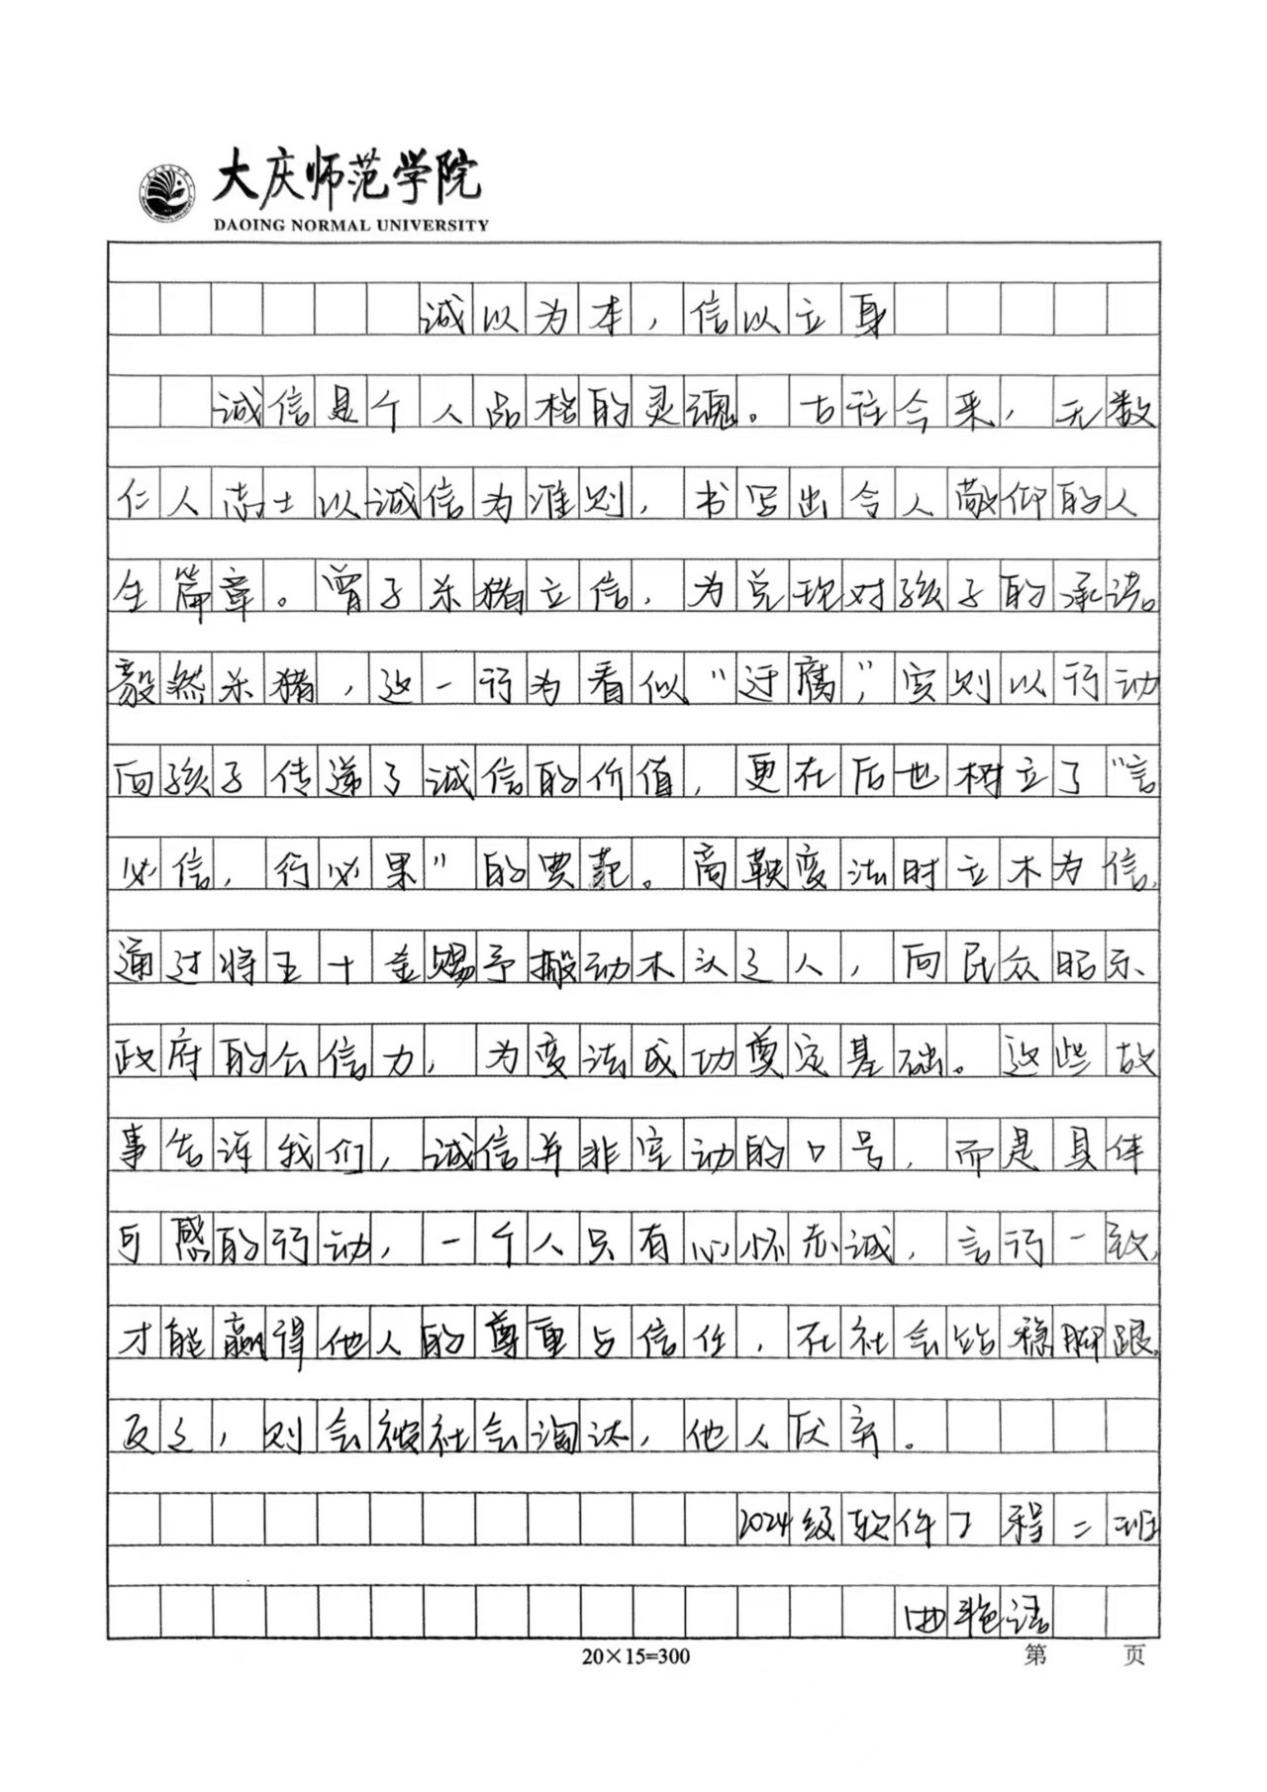 大庆师范学院
DAOING NORMAL UNIVERSITY
诚以为本，信以立身
诚信是个人品格的灵魂。古往今来，无数
仁人志士以诚信为准则，书写出令人敬仰的人
生篇章。曾子杀猪立信，为兑现对孩子的承诺。
毅然杀猪，这一行为看似“迂腐”，实则以行动
向孩子传递了诚信的价值，更在后世树立了“言
必信，行必果”的典范。商鞅变法时立木为信，
通过将五十金赐予搬动木头之人，向民众昭示
政府的公信力，为变法成功奠定基础。这些故
事告诉我们，诚信并非空动的口号，而是具体
可感的行动，一个人只有心怀赤诚，言行一致，
才能赢得他人的尊重与信任，在社会站稳脚跟。
反之，则会被社会淘汰，他人厌弃。
2024级软件工程二班
艳语
20×15=300
第 页